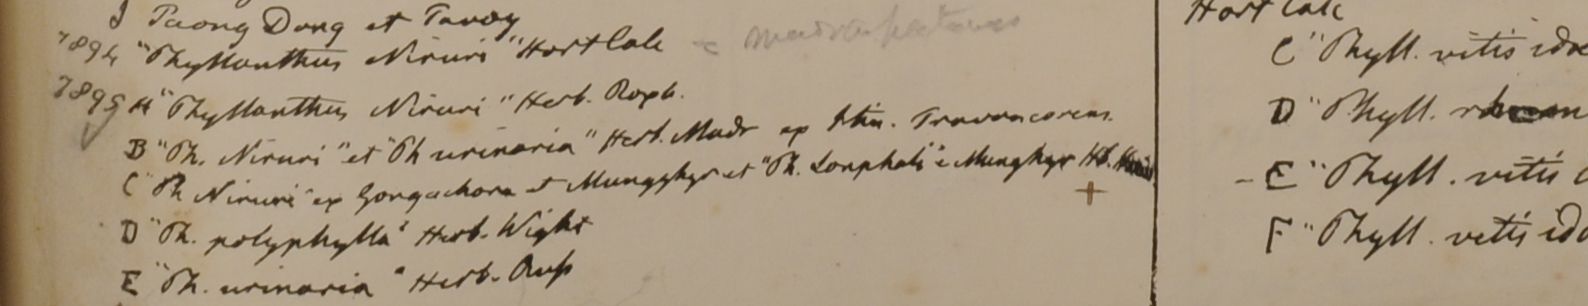 J Taong Dong et Tavoy
7894 "Phyllanthus Niruri" Hort Calc
7895 A "Phyllanthus Niruri" Herb. Roxb.
B "Ph. Niruri" et "Ph urinaria" Herb. Madr ex Itin. Travancorens.
C "Ph Niruri" ex Gongachora et Mungghyr et "Ph. Lonphali" e Munghyr Hb.
D "Ph. polyphylla" Herb. Wight
E "Ph. urinaria" Herb.
Hort Calc
C "Phyll. vitis idae
D "Phyll.
E "Phyll. vitis
F "Phyll. vitis ida